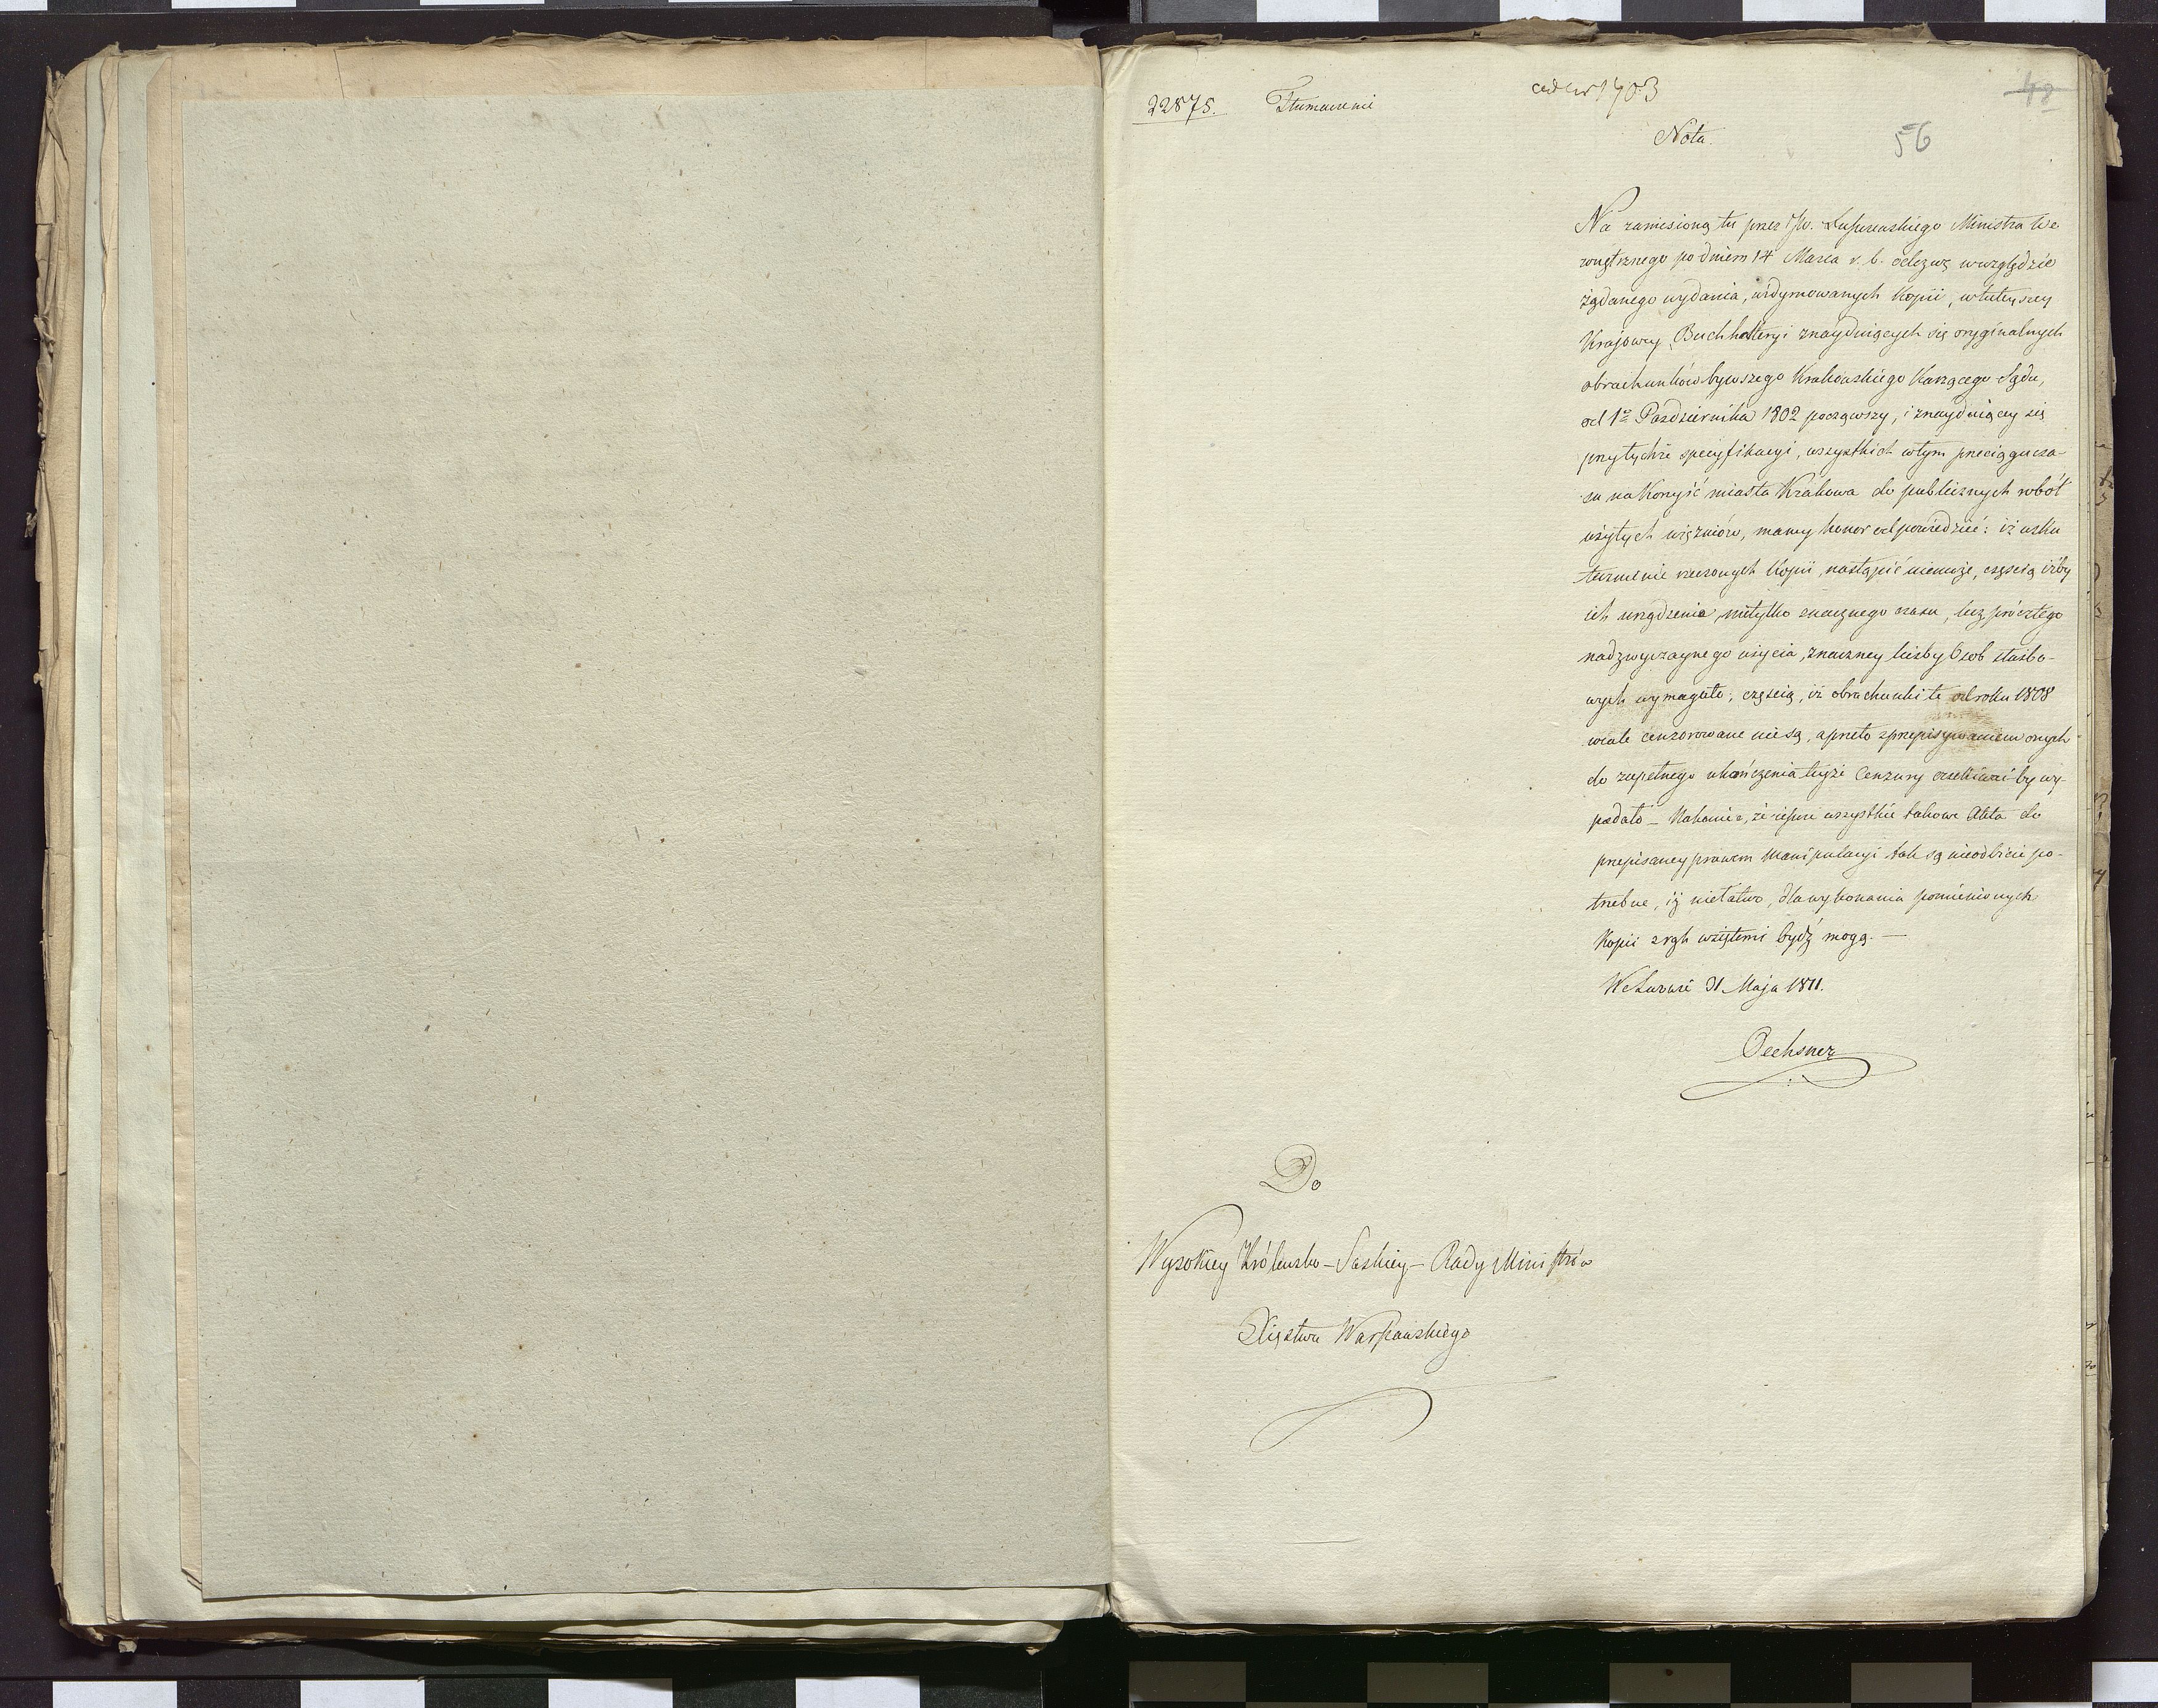 22875. Tłumaczenie
ad Nr 1703
48
Nota.
56
Na zaniesioną tu przez JW. Łuszczewskiego Ministra We
wnętrznego pod dniem 14 Marca r. b. odezwę względzie
żądanego wydania, widymowanych Kopii, w tuteyszey
Krajowey Buchhalteryi znayduiących się oryginalnych
obrachunków bywszego Krakowskiego Karzącego Sądu,
od 1o Października 1802 począwszy, i znayduiącey się
przytychże specyfikacyi, wszystkich w tym przeciągu cza-
su na Korzyść miasta Krakowa do publicznych robót
użytych więzniów, mamy honor odpowiedzieć: iż usku
tecznienie rzeczonych Kopii nastąpić niemoże, częscią iżby
ich urządzenie nietylko znacznego czasu, lecz prócztego
nadzwyczaynego użycia, znaczney liczby Osob służbo-
wych wymagało; częscią, iż obrachunki te od roku 1808
wcale cenzorowane nie są, a przeto z przepisywaniem onych
do zupełnego ukończenia teyże Cenzury czekiwać by wy-
padało – Nakoniec, że ieszcze wszystkie takowe Akta do
przepisaney prawem Manipulacyi tak są nieodbicie po-
trzebne, iż niełatwo, dla wykonania pomienionych
Kopii z rąk wziętemi bydź mogą. —
We Lwowie 31 Maja 1811.
Oechsner
Do
Wysokiey Królewsko – Saskiey – Rady Ministrów
Xięstwa Warszawskiego